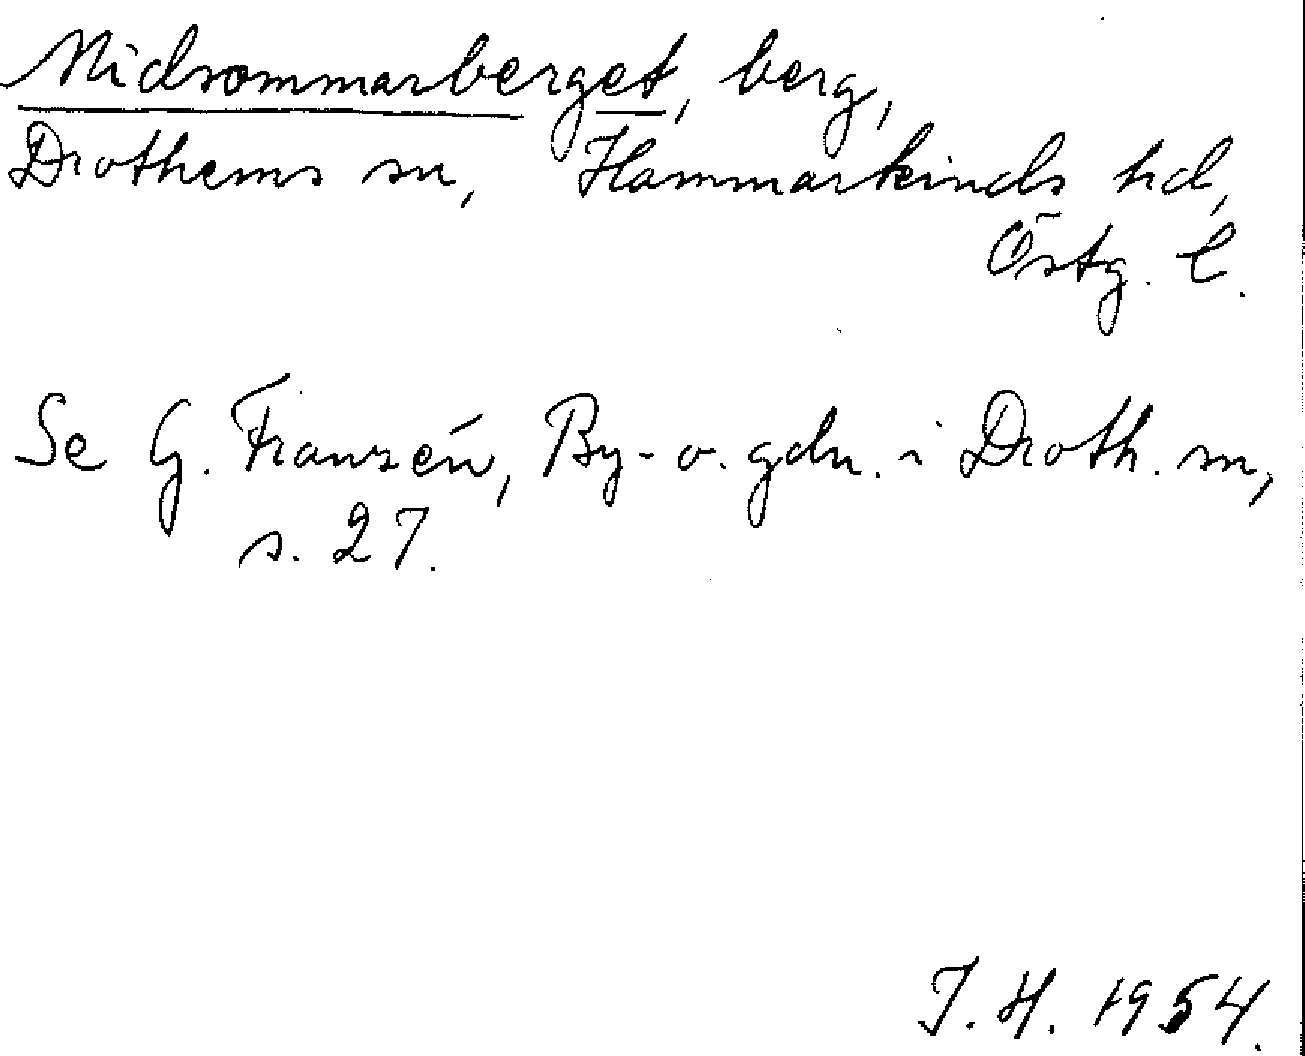 Midsommarberget, berg,
Drothems sn, Hammarkinds hd,
Östg. l.
Se G. Franzén, By- o. gdn. i Droth. sn,
s. 27.
J. H. 1954.